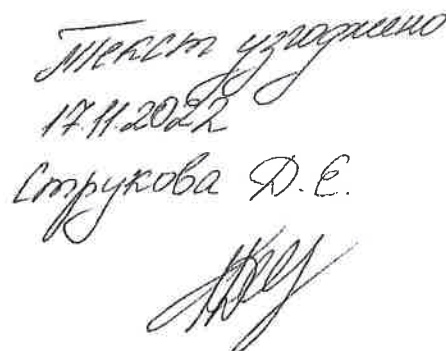 Текст узгоджено
17.11.2022
Струкова Д.Е.